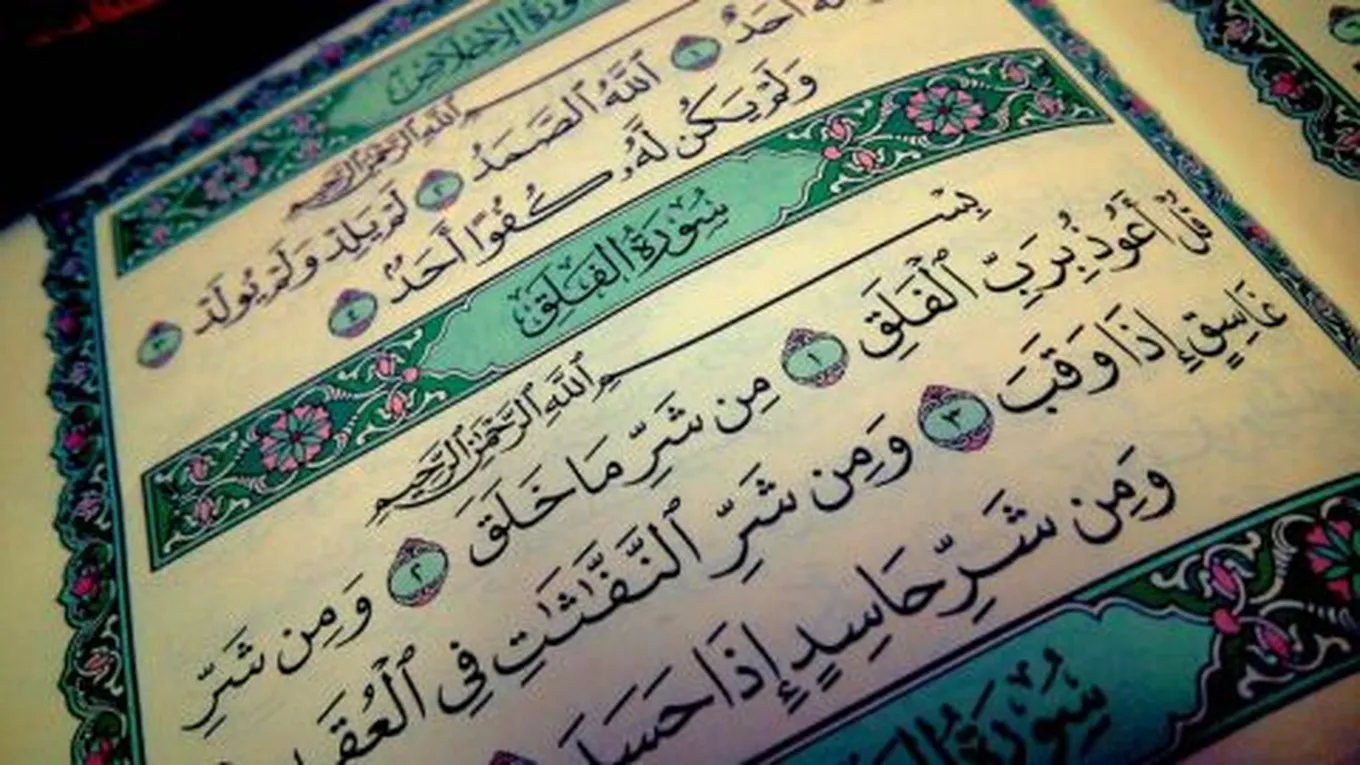 سُورَةُ الإِخْلَاصِ
ٱللَّهِ ٱلرَّحْمَٰنِ ٱلرَّحِيمِ
أَحَدٌ ١ ٱللَّهُ ٱلصَّمَدُ ٢ لَمْ يَلِدْ وَلَمْ يُولَدْ ٣
وَلَمْ يَكُن لَّهُۥ كُفُوًا أَحَدٌۢ ٤
سُورَةُ الفَلَقِ
بِسْمِ ٱللَّهِ ٱلرَّحْمَٰنِ ٱلرَّحِيمِ
قُلْ أَعُوذُ بِرَبِّ ٱلْفَلَقِ ١ مِن شَرِّ مَا خَلَقَ ٢ وَمِن شَرِّ
غَاسِقٍ إِذَا وَقَبَ ٣ وَمِن شَرِّ ٱلنَّفَّٰثَٰتِ فِى ٱلْعُقَدِ
وَمِن شَرِّ حَاسِدٍ إِذَا حَسَدَ
سُورَةُ